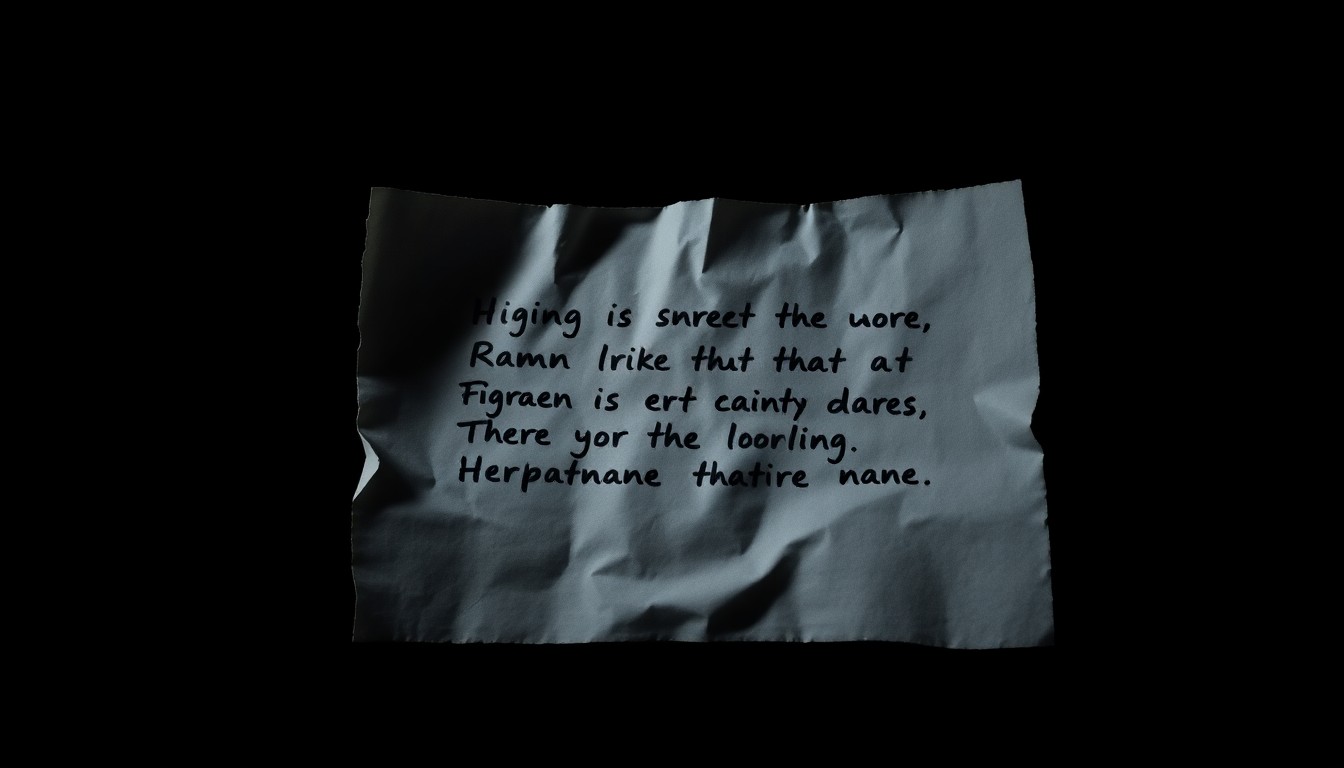 Higing is snreet the uore,
Ramn lrike thut that at
Figraen is ert cainty dares,
There yor the loorling.
Herpatnane thatire nane.